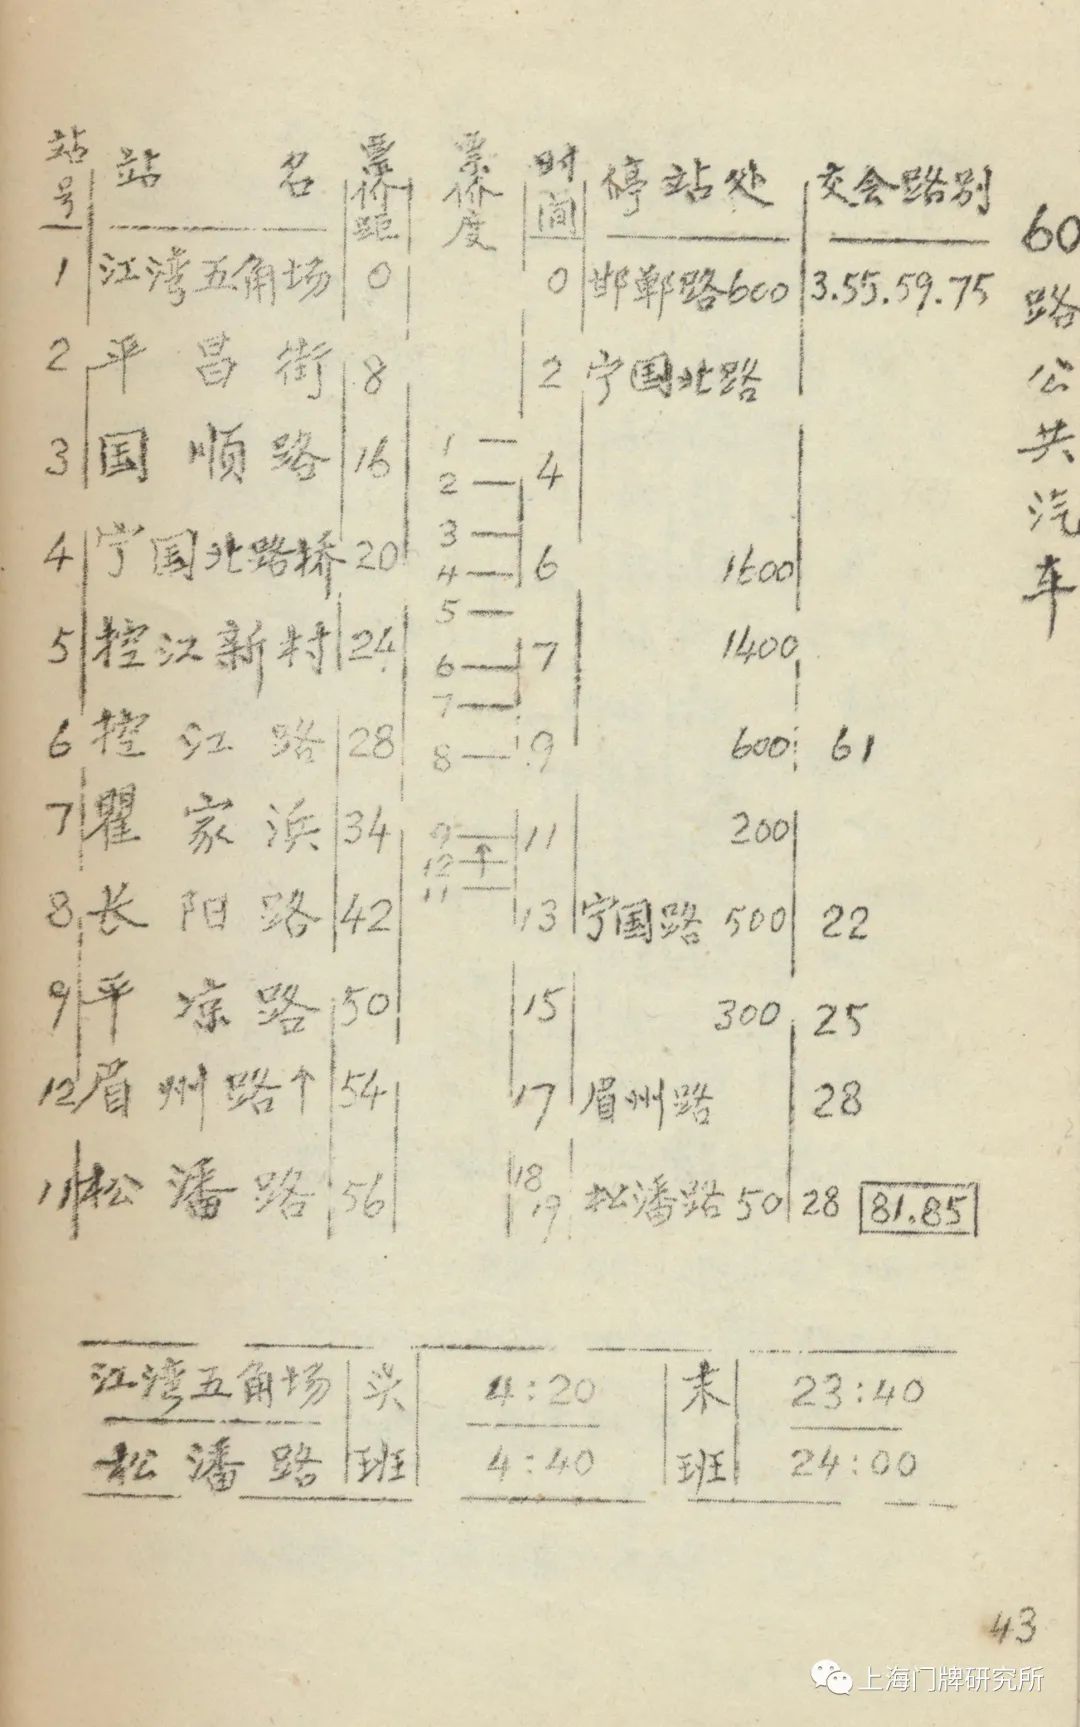 60路公共汽车
站号 站名 票价距 票价度 时间 停站处 交会路别
1 江湾五角场 0 0 邯郸路600 3.55.59.75
2 平昌街 8 2 宁国北路
3 国顺路 16 4
4 宁国北路桥 20 6 1600
5 控江新村 24 7 1400
6 控江路 28 9 600 61
7 瞿家浜 34 11 200
8 长阳路 42 13 宁国路 500 22
9 平凉路 50 15 300 25
12 眉州路↑ 54 17 眉州路 28
11 松潘路 56 18 19 松潘路 50 28 81.85
1
2
3
4
5
6
7
8
9
12 ↑
11
江湾五角场 头班 4:20 末班 23:40
松潘路 4:40 24:00
43
上海门牌研究所